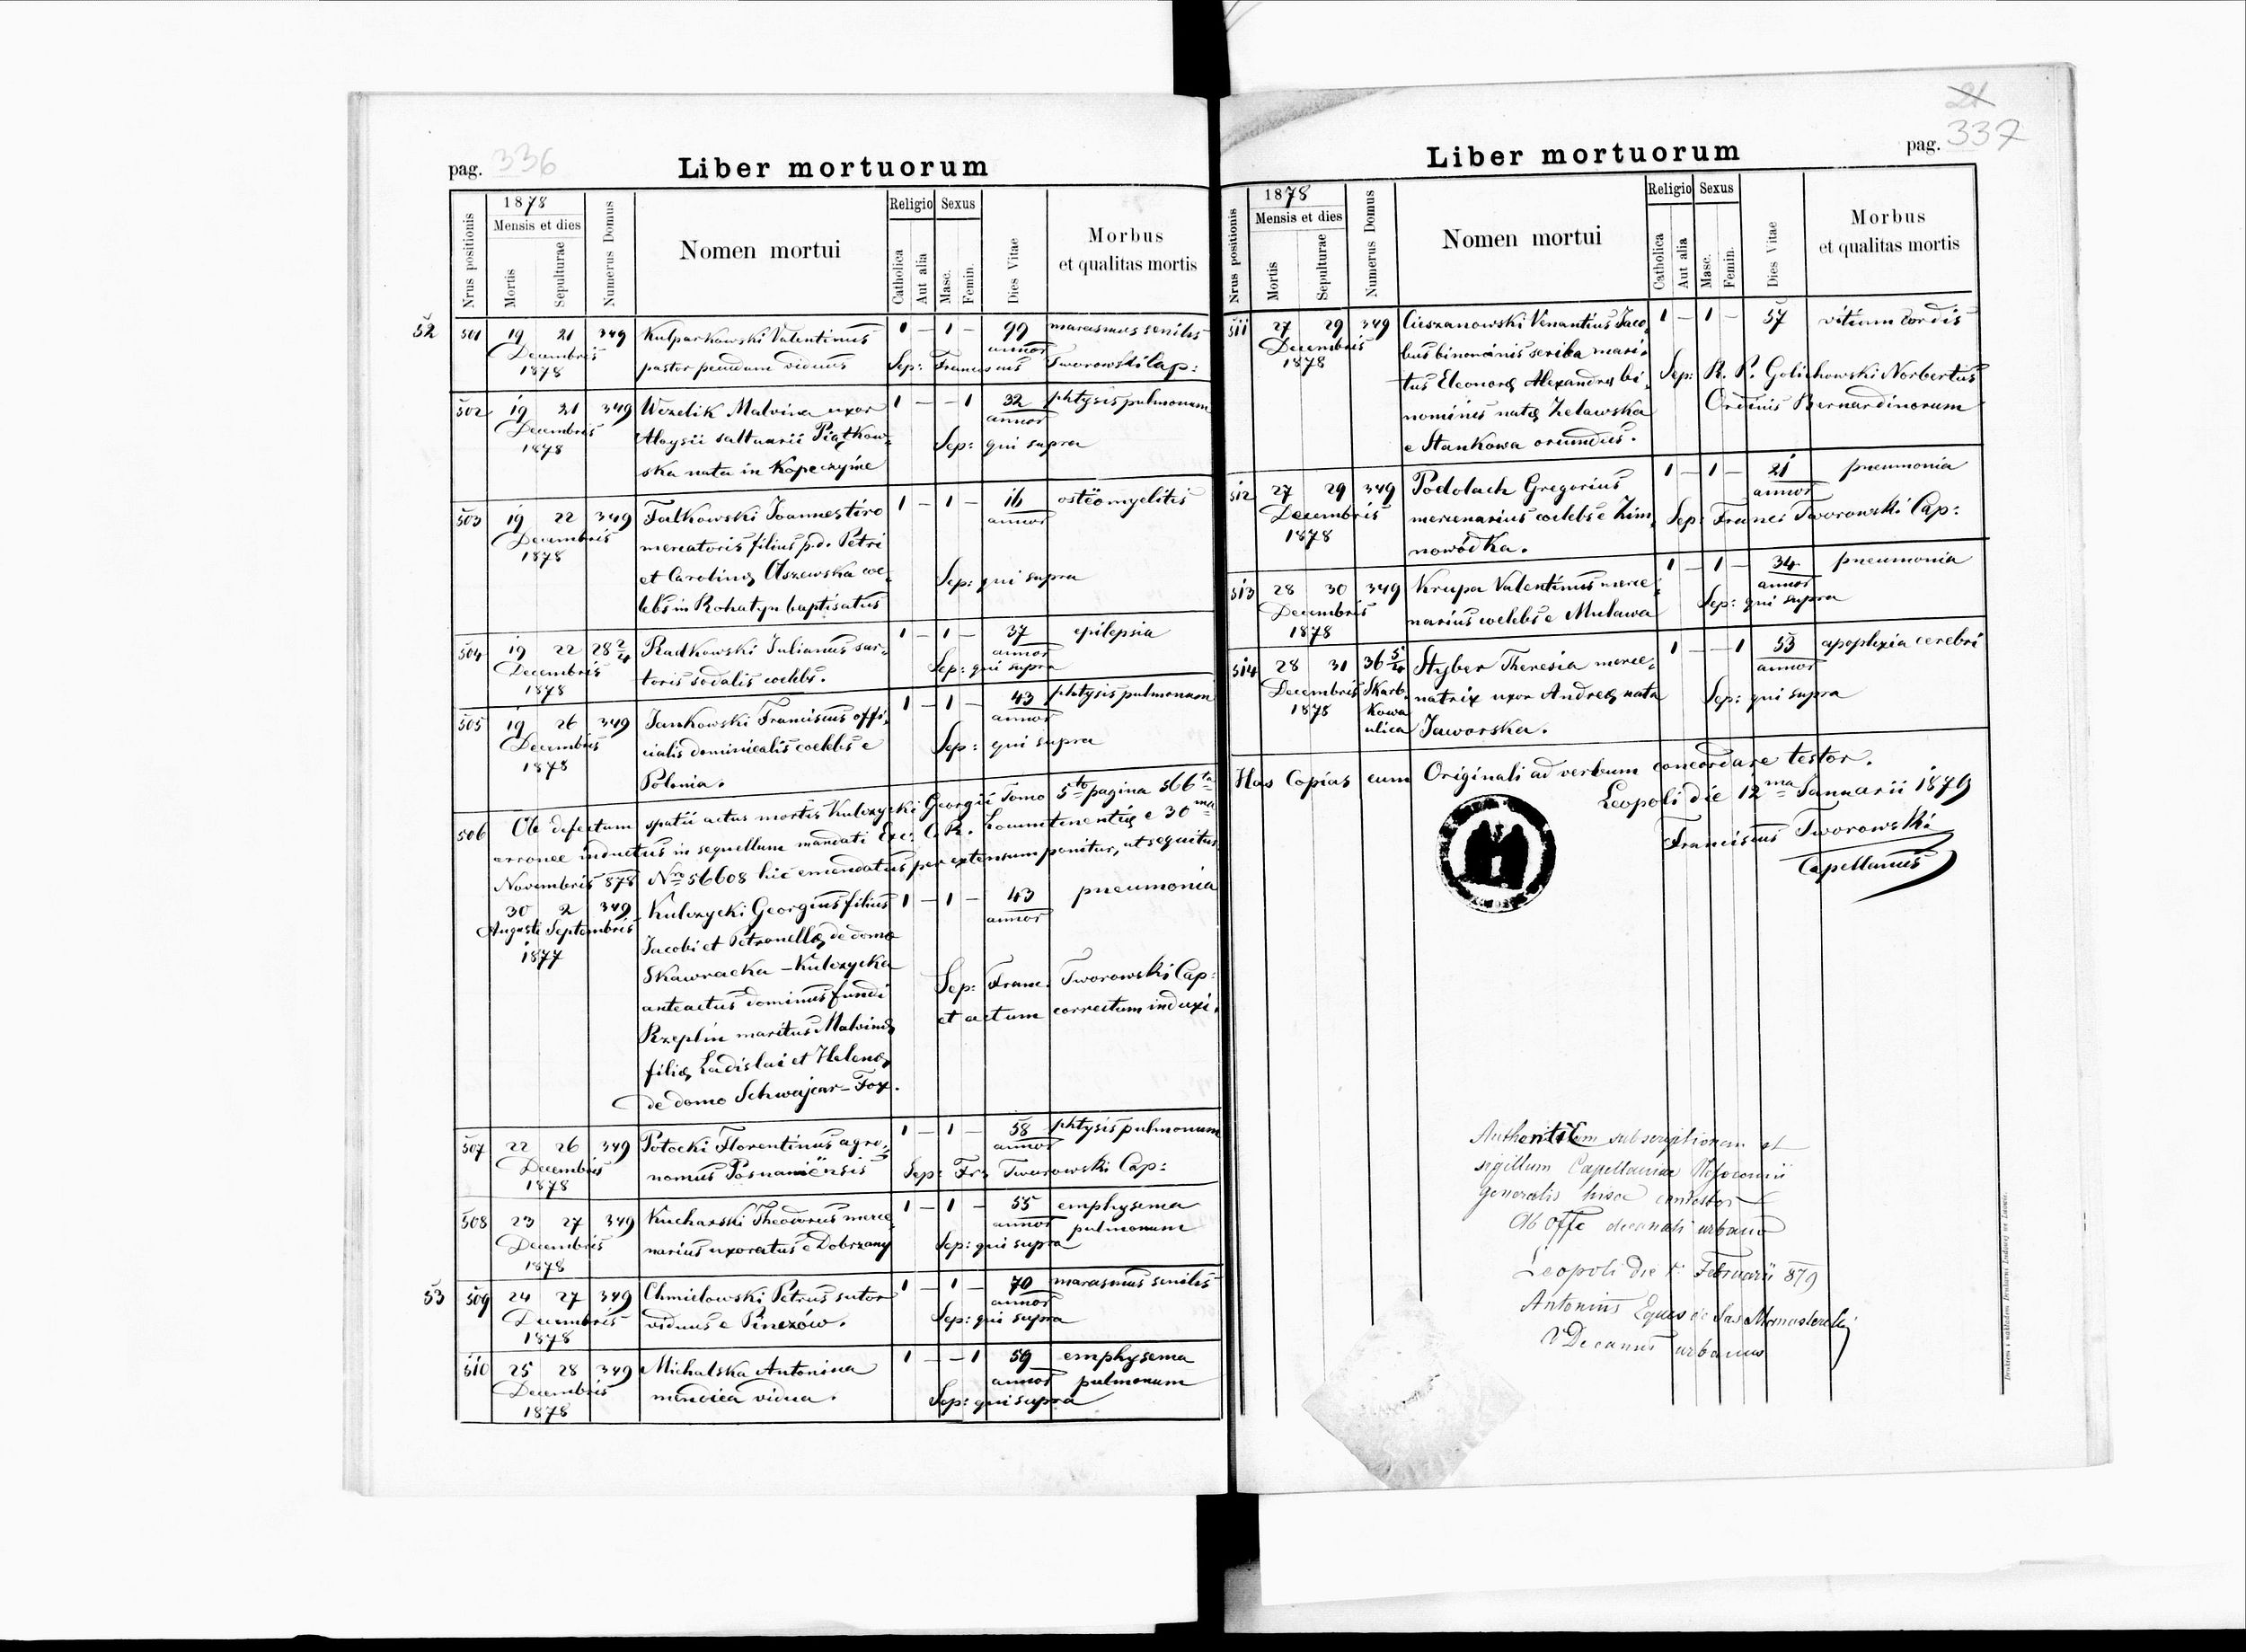 pag. 336
Liber mortuorum
Nrus positionis
1878
Mensis et dies
Mortis
Sepulturae
Numerus Domus
Nomen mortui
Religio
Catholica
Aut alia
Sexus
Masc.
Femin.
Dies Vitae
Morbus
et qualitas mortis
52 501 19 21 349 Kulparkowski Valentinus 1 – 1 – 99 marasmus senilis
Decembris pastor pecudum viduus annor
1878 Sep: Franciscus Tworowski Cap:
502 19 21 349 Wezelik Malvina uxor 1 – – 1 32 phtysis pulmonum
Decembris Aloysii saltuarii Piątkow- annor
1878 ska nata in Kopeczyńce Sep: qui supra
503 19 22 349 Falkowski Joannes tiro 1 – 1 – 16 osteomyelitis
Decembris mercatoris filius p.d. Petri annor
1878 et Carolinę Olszewska coe- Sep: qui supra
lebs in Rohatyn baptisatus
504 19 22 28 2/4 Radkowski Julianus sar- 1 – 1 – 37 epilepsia
Decembris toris sodalis coelebs. annor
1878 Sep: qui supra
505 19 26 349 Jankowski Franciscus offi- 1 – 1 – 43 phtysis pulmonum
Decembris cialis dominicalis coelebs e annor
1878 Polonia. Sep: qui supra
506 Ob defectum spatii actus mortis Kulczycki Georgii Tomo 5to pagina 566ta
erronee inductus in sequellam mandati Exc: C. R. Locumtenentię e 30ma
Novembris 878 Nro 56608 hic emendatus per extensum ponitur, ut sequitur
30 2 349 Kulczycki Georgius filius 1 – 1 – 43 pneumonia
Augusti Septembris Jacobi et Petronellę de domo annor
1877 Skawracka – Kulczycka
anteactus dominus fundi Sep: Franc. Tworowski Cap:
Rzeplin maritus Malvinę et actum correctum induxi.
filię Ladislai et Helenę
de domo Schwajcar – Fox.
507 22 26 349 Potocki Florentinus agro- 1 – 1 – 58 phtysis pulmonum
Decembris nomus Posnaniensis annor
1878 Sep: Fr: Tworowski Cap:
508 23 27 349 Kucharski Theodorus merce- 1 – 1 – 55 emphysema
Decembris narius uxoratus e Dobrzany annor pulmonum
1878 Sep: qui supra
53 509 24 27 349 Chmielowski Petrus sutor 1 – 1 – 70 marasmus senilis
Decembris viduus e Pinczów. annor
1878 Sep: qui supra
510 25 28 349 Michalska Antonina 1 – – 1 59 emphysema
Decembris mendica vidua. annor pulmonum
1878 Sep: qui supra
21
pag. 337
Liber mortuorum
Nrus positionis
1878
Mensis et dies
Mortis
Sepulturae
Numerus Domus
Nomen mortui
Religio
Catholica
Aut alia
Sexus
Masc.
Femin.
Dies Vitae
Morbus
et qualitas mortis
511 27 29 349 Cieszanowski Venantius Jaco- 1 – 1 – 57 vitium cordis
Decembris bus binominis scriba mari-
1878 tus Eleonorę Alexandrę bi- Sep: R. P. Golichowski Norbertus
nominis natę Zelawska Ordinis Bernardinorum
e Stankowa oriundus.
512 27 29 349 Podolach Gregorius 1 – 1 – 21 pneumonia
Decembris mercenarius coelebs e Zim- annor
1878 nowódka. Sep: Franc: Tworowski Cap:
513 28 30 349 Krupa Valentinus merce- 1 – 1 – 34 pneumonia
Decembris narius coelebs e Mulawa annor
1878 Sep: qui supra
514 28 31 36 5/4 Styber Theresia merce- 1 – – 1 53 apoplexia cerebri
Decembris Skarb- natrix uxor Andreę nata annor
1878 kowa Jaworska. Sep: qui supra
ulica
Has Copias cum Originali ad verbum concordare testor.
Leopoli die 12ma Januarii 1879
Franciscus Tworowski
Capellanus
Authenticam subscriptionem et
sigillum Capellaniae Nosocomii
generalis hisce contestor
Ab offo decanali urbano
Leopoli die Februarii 879
Antonius Eques de Sas Monasterski
V Decanus urbanus